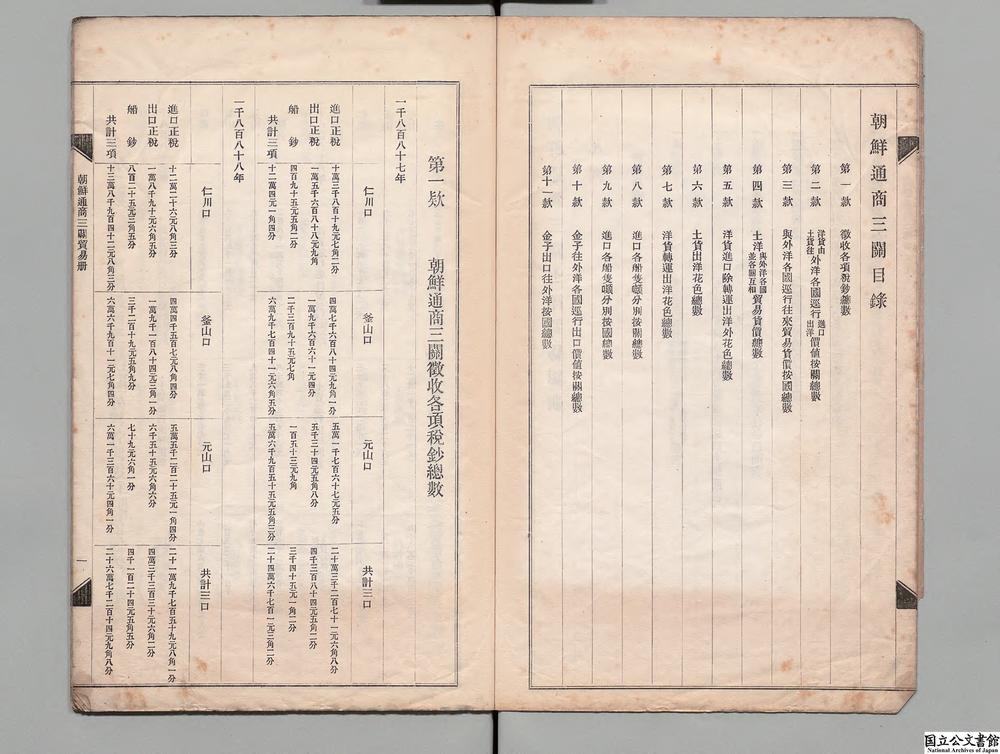 朝鮮通商三關目錄
第一款 徵收各項稅鈔總數
第二款 洋貨由土貨往外洋各國逕行進口出洋價值按關總數
第三款 與外洋各國逕行往來貿易貨價按國總數
第四款 土洋與外洋各國並各關互相貿易貨價總數
第五款 洋貨進口除轉運出洋外花色總數
第六款 土貨出洋花色總數
第七款 洋貨轉運出洋花色總數
第八款 進口各船隻噸分別按關總數
第九款 進口各船隻噸分別按國總數
第十款 金子往外洋各國逕行出口價值按關總數
第十一款 金子出口往外洋按國總數
第一款 朝鮮通商三關徵收各項稅鈔總數
一千八百八十七年
仁川口 釜山口 元山口 共計三口
進口正稅 十萬三千八百十九元七角二分 四萬七千六百八十四元九角一分 五萬一千七百六十七元五分 二十萬三千二百七十一元六角八分
出口正稅 一萬五千六百八十八元九角 一萬九千六百六十一元四分 五千三十四元五角八分 四千三百八十四元五角二分
船鈔 四百九十五元五角二分 二千三百九十五元七角 一百五十三元九角 三千四十五元一角二分
共計三項 十二萬四元一角四分 六萬九千七百四十一元六角五分 五萬六千九百五十五元五角三分 二十四萬六千七百一元三角二分
一千八百八十八年
仁川口 釜山口 元山口 共計三口
進口正稅 十二萬二十六元八角三分 四萬四千五百七元八角四分 五萬五千二百二十五元一角四分 二十一萬九千七百五十九元八角一分
出口正稅 一萬八千九十元六角五分 一萬九千一百八十四元三角一分 六千五十五元六角六分 四萬三千三百三十元六角二分
船鈔 八百二十五元三角五分 三千二百十九元五角九分 七十九元六角一分 四千一百二十四元五角五分
共計三項 十三萬八千九百四十二元八角三分 六萬六千九百十一元七角四分 六萬一千三百六十元四角一分 二十六萬七千二百十四元九角八分
朝鮮通商三關貿易册 一
国立公文書館
National Archives of Japan